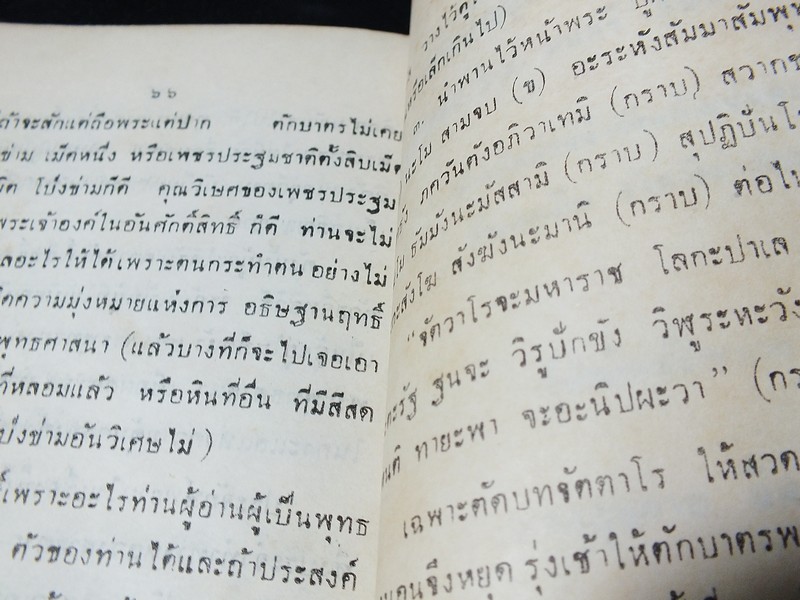 ๖๖
ถ้าจะสักแต่ถือพระแต่ปาก ตักบาตรไม่เคย
ข่าม เม็ดหนึ่ง หรือเพชรประฐมชาติตั้งสิบเม็ด
โป่งข่ามก็ดี คุณวิเษศของเพชรประฐม
พระเจ้าองค์ในอันศักดิ์สิทธิ์ ก็ดี ท่านจะไม่
ลอะไรให้ได้เพราะตนกระทำตน อย่างไม่
ความมุ่งหมายแห่งการ อธิษฐานฤทธิ์
พุทธศาสนา (แล้วบางทีก็จะไปเจอเอา
ที่หลอมแล้ว หรือหินที่อื่น ที่มีสีสด
โป่งข่ามอันวิเศษไม่)
เพราะอะไรท่านผู้อ่านผู้เป็นพุทธ
ตัวของท่านได้และถ้าประสงค์
วางไว้
หรือเล็กเกินไป)
๓. นำพานไว้หน้าพระ
นะโม สามจบ (ข) อะระหังสัมมาสัมพุท
ภควันตังอภิวาเทมิ (กราบ) สวากข
ธัมมังนะมัสสามิ (กราบ) สุปฏิปันโน
สังฆังนะมานิ (กราบ) ต่อไป
"จัตวาโรจะมหาราช โลกะปาเล
ฐนจะ วิรูปักขัง วิพูระหะวัง
ทายะพา จะอะนิปผะวา" (กร
เฉพาะตัดบทจัตตาโร ให้สวด
จึงหยุด รุ่งเช้าให้ตักบาตรพ